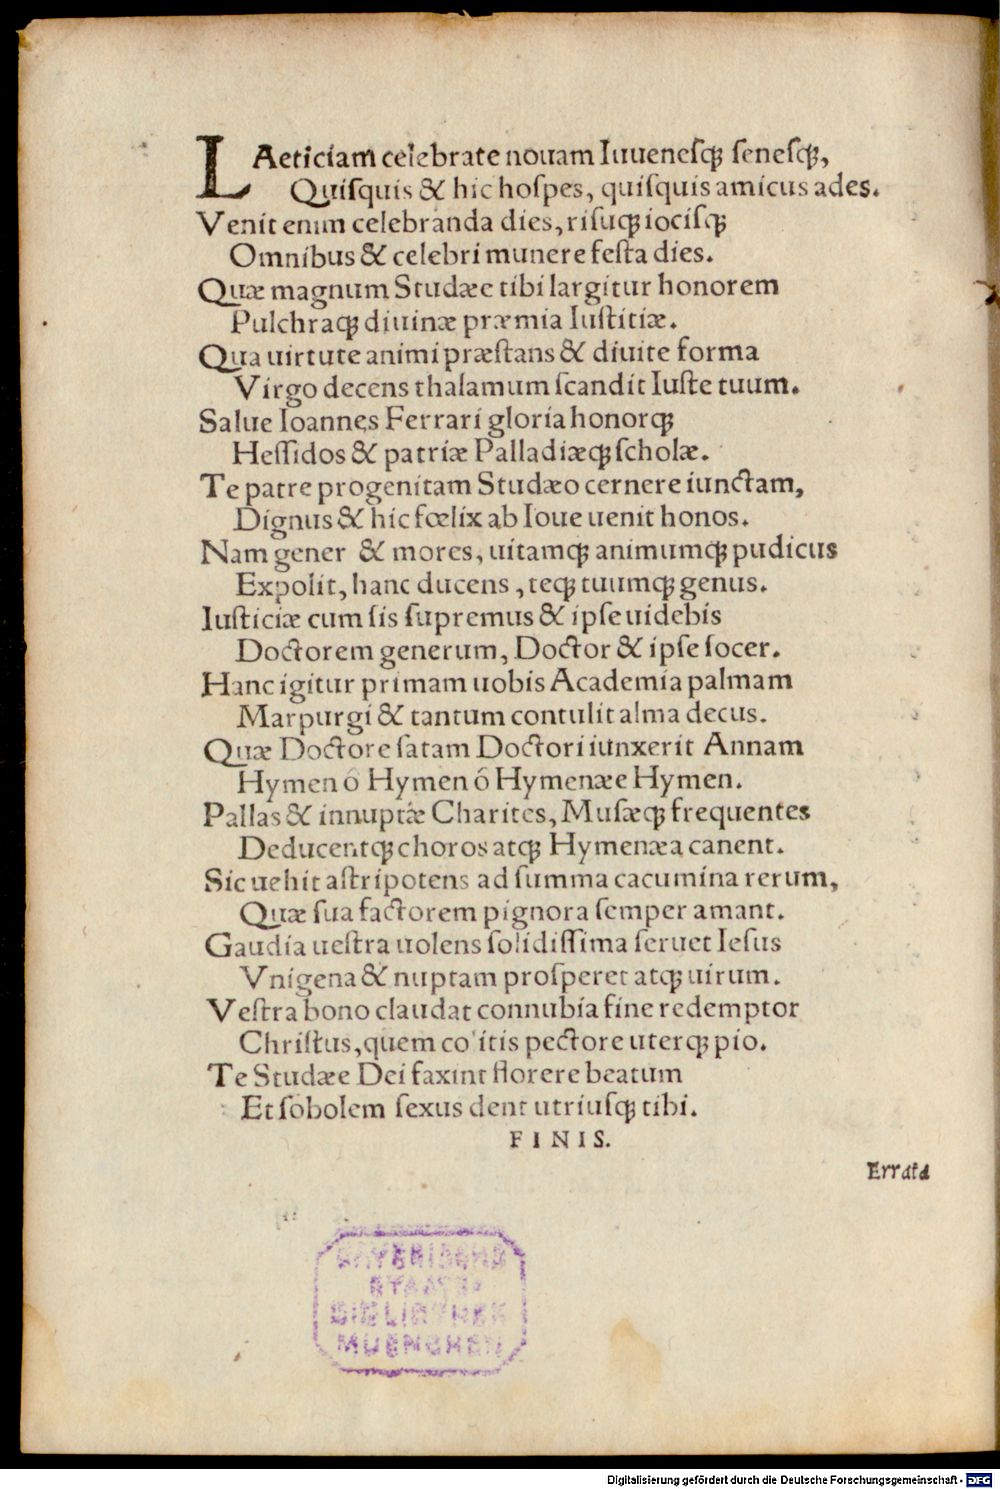 LAeticiam celebrate nouam Iuuenesq́ꝫ senesq́ꝫ,
Quisquis & hic hospes, quisquis amicus ades.
Venit enim celebranda dies, risuq́ꝫ iocisq́ꝫ
Omnibus & celebri munere festa dies.
Quæ magnum Studæe tibi largitur honorem
Pulchraq́ꝫ diuinæ præmia Iustitiæ.
Qua uirtute animi præstans & diuite forma
Virgo decens thalamum scandit Iuste tuum.
Salue Ioannes Ferrari gloria honorq́ꝫ
Hessidos & patriæ Palladiæq́ꝫ scholæ.
Te patre progenitam Studæo cernere iunctam,
Dignus & hic fœlix ab Ioue uenit honos.
Nam gener & mores, uitamq́ꝫ animumq́ꝫ pudicus
Expolit, hanc ducens, teq́ꝫ tuumq́ꝫ genus.
Iusticiæ cum sis supremus & ipse uidebis
Doctorem generum, Doctor & ipse socer.
Hanc igitur primam uobis Academia palmam
Marpurgi & tantum contulit alma decus.
Quæ Doctore satam Doctori iunxerit Annam
Hymen ó Hymen ó Hymenæe Hymen.
Pallas & innuptæ Charites, Musæq́ꝫ frequentes
Deducentq́ꝫ choros atq́ꝫ Hymenæa canent.
Sic uehit astripotens ad summa cacumina rerum,
Quæ sua factorem pignora semper amant.
Gaudia uestra uolens solidissima seruet Iesus
Vnigena & nuptam prosperet atq́ꝫ uirum.
Vestra bono claudat connubia fine redemptor
Christus, quem co'itis pectore uterq́ꝫ pio.
Te Studæe Dei faxint florere beatum
Et sobolem sexus dent utriusq́ꝫ tibi.
FINIS.
Errata
BAYERISCHE
STAATS-
BIBLIOTHEK
MUENCHEN
Digitalisierung gefördert durch die Deutsche Forschungsgemeinschaft - DFG